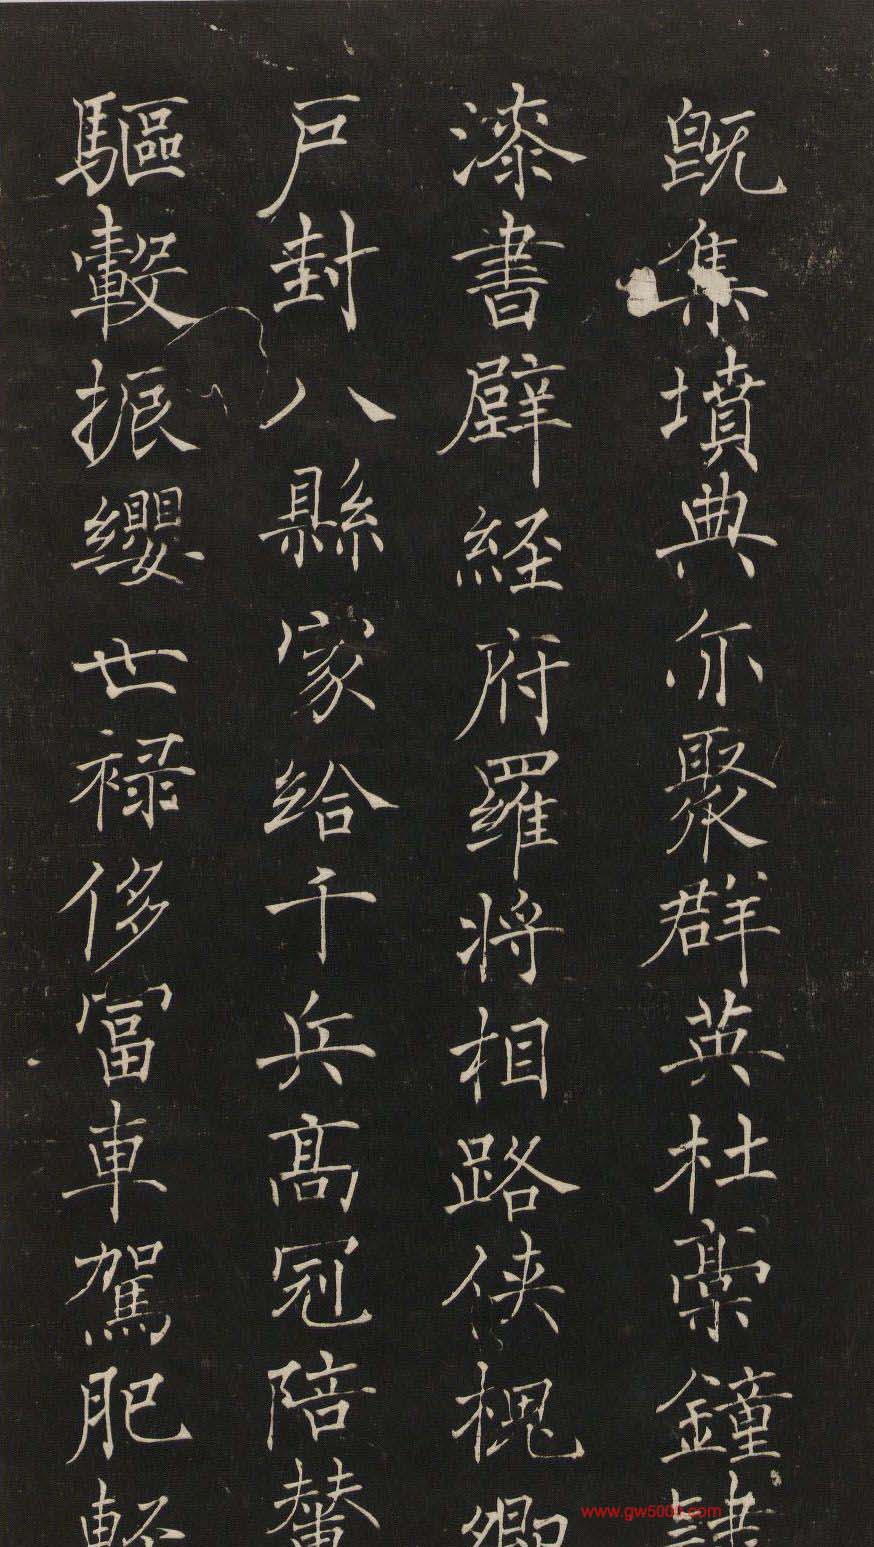 既集墳典亦聚群英杜稾鍾隸
漆書壁經府羅将相路俠槐卿
戸封八縣家給千兵髙冠陪輦
驅轂振纓世禄侈富車駕肥輕
www.gw5000.com